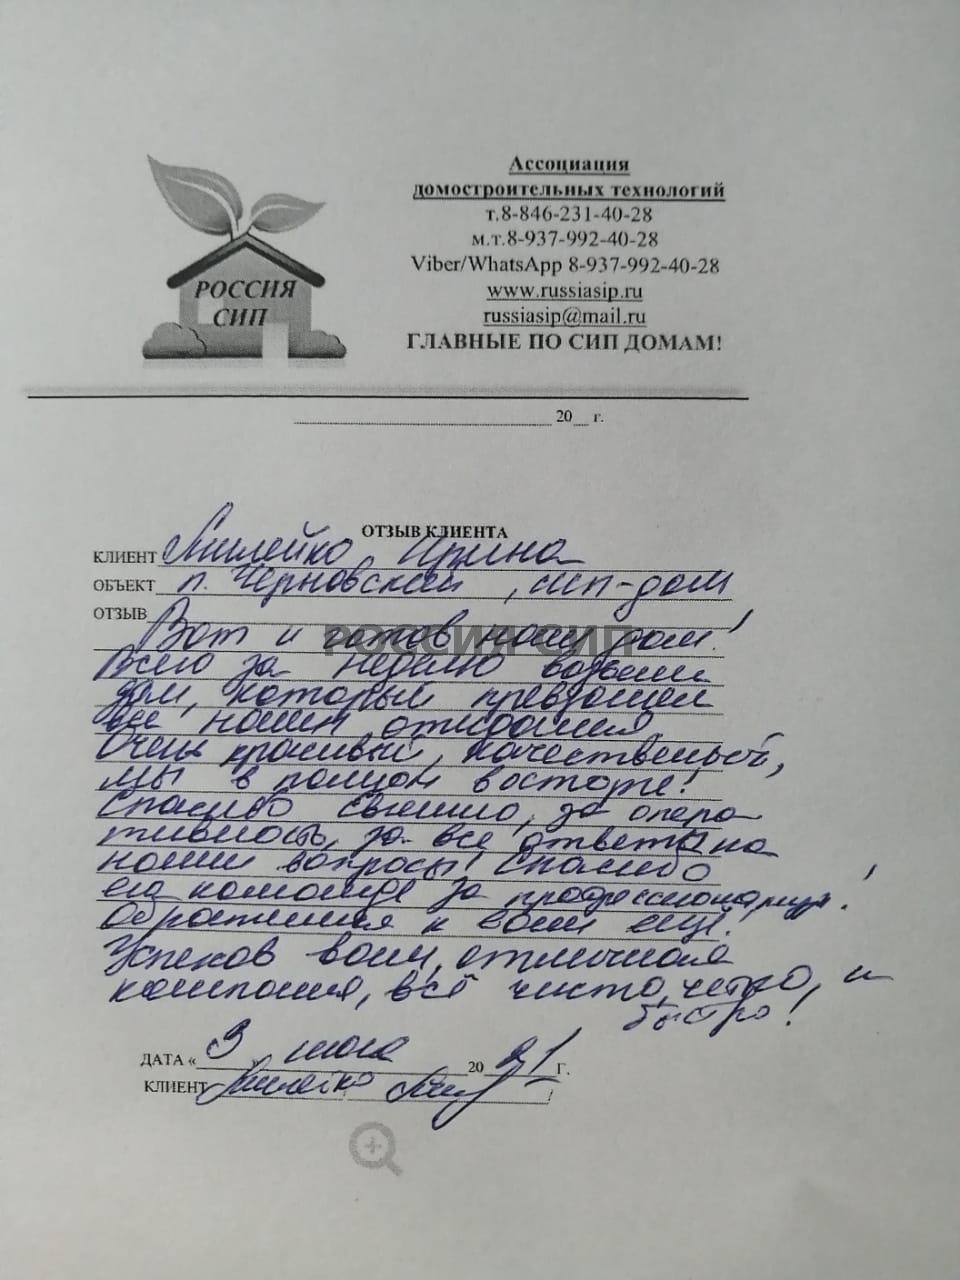 Ассоциация
домостроительных технологий
т.8-846-231-40-28
м.т.8-937-992-40-28
Viber/WhatsApp 8-937-992-40-28
www.russiasip.ru
russiasip@mail.ru
ГЛАВНЫЕ ПО СИП ДОМАМ!
РОССИЯ
СИП
20__ г.
ОТЗЫВ КЛИЕНТА
КЛИЕНТ Милейко Ирина
ОБЪЕКТ п. Черновский, сип-дом
ОТЗЫВ
Вот и готов наш дом!
РОССИЯ СИП
Всего за неделю возвели
дом, который превзошел
все наши ожидания.
Очень красивый, качественный,
мы в полном восторге!
Спасибо за опера
тивность, за все ответы на
наши вопросы! Спасибо
его команде за профессионализм!
Обратимся к вам ещё!
Успехов вам, отличная
компания, всё чисто, четко, и
быстро!
ДАТА « 9 » июля 20 21 г.
КЛИЕНТ Милейко